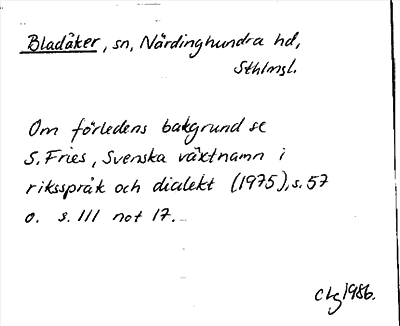 Bladåker, sn, Närdinghundra hd,
Sthlmsl.
Om förledens bakgrund se
S. Fries, Svenska växtnamn i
riksspråk och dialekt (1975), s. 57
o. s. 111 not 17.
CLg 1986.